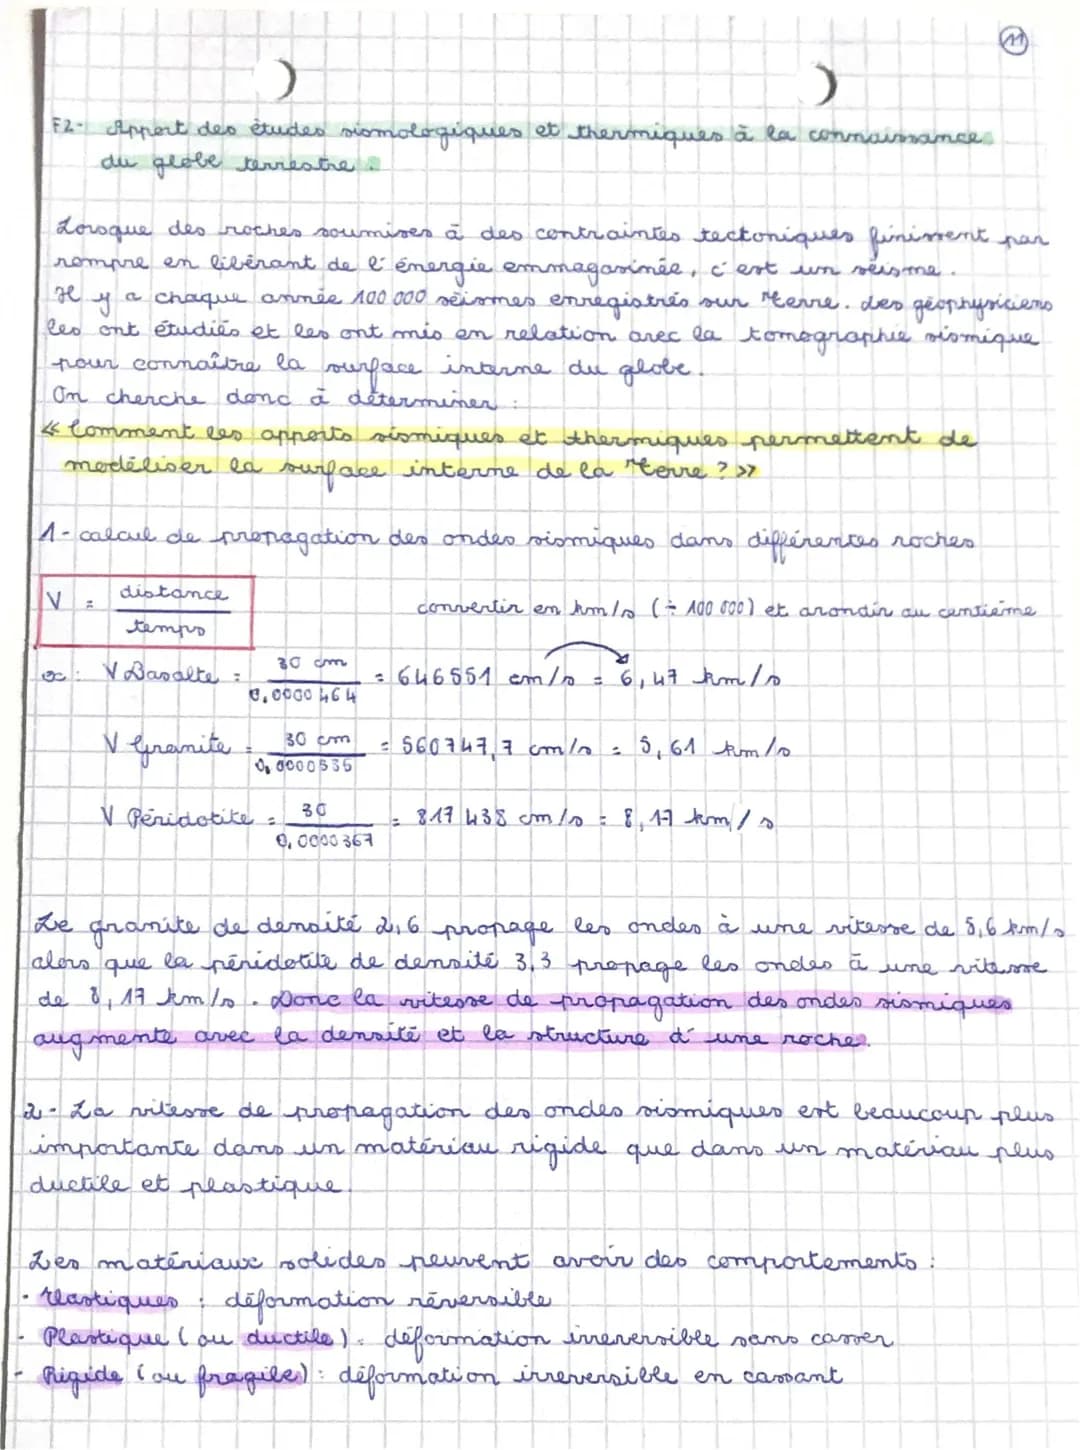 11
F2- Apport des études sismologiques et thermiques à la connaissance
du globe terrestre.
Lorsque des roches soumises à des contraintes tectoniques finissent par
rompre en libérant de l'énergie emmagasinée, c'est un séisme.
Il y a chaque année 100 000 séismes enregistrés sur Terre. des géophysiciens
les ont étudiés et les ont mis en relation avec la tomographie sismique
pour connaître la surface interne du globe.
On cherche donc à déterminer :
« Comment les apports sismiques et thermiques permettent de
modéliser la surface interne de la Terre ? »
1- calcul de propagation des ondes sismiques dans différentes roches
V = distance / temps
convertir en km/s (÷ 100 000) et arondir au centième
ex : V Basalte = 30 cm / 0,0000464 = 646551 cm/s = 6,47 km/s
V Granite = 30 cm / 0,0000535 = 560747,7 cm/s = 5,61 km/s
V Péridotite = 30 / 0,0000367 = 817 438 cm/s = 8,17 km/s
Le granite de densité 2,6 propage les ondes à une vitesse de 5,6 km/s
alors que la péridotite de densité 3,3 propage les ondes à une vitesse
de 8,17 km/s. Donc la vitesse de propagation des ondes sismiques
augmente avec la densité et la structure d'une roche.
2- La vitesse de propagation des ondes sismiques est beaucoup plus
importante dans un matériau rigide que dans un matériau plus
ductile et plastique.
Les matériaux solides peuvent avoir des comportements :
- Elastiques : déformation réversible
- Plastique (ou ductile) : déformation irreversible sans casser
- Rigide (ou fragile) : déformation irreversible en cassant